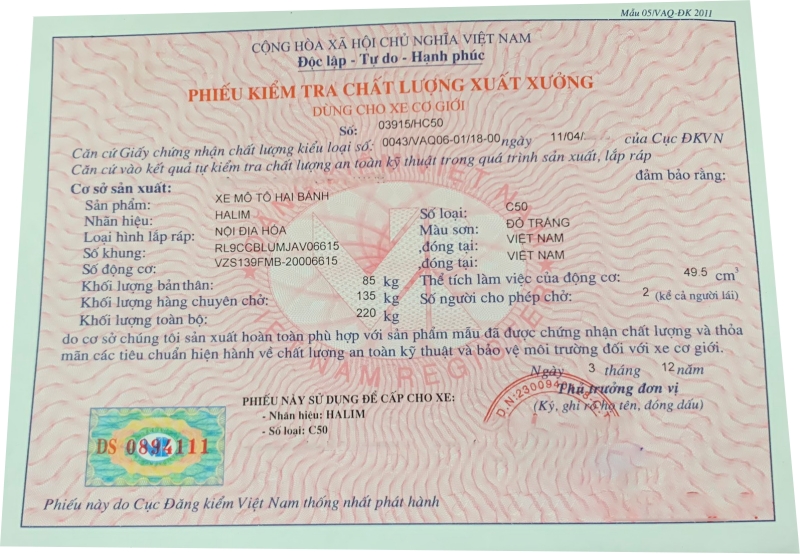 Mẫu 05/VAQ-ĐK 2011
CỘNG HÒA XÃ HỘI CHỦ NGHĨA VIỆT NAM
Độc lập - Tự do - Hạnh phúc
PHIẾU KIỂM TRA CHẤT LƯỢNG XUẤT XƯỞNG
DÙNG CHO XE CƠ GIỚI
Số: 03915/HC50
Căn cứ Giấy chứng nhận chất lượng kiểu loại số: 0043/VAQ06-01/18-00 ngày 11/04/. của Cục ĐKVN
Căn cứ vào kết quả tự kiểm tra chất lượng an toàn kỹ thuật trong quá trình sản xuất, lắp ráp
đảm bảo rằng:
Cơ sở sản xuất:
Sản phẩm: XE MÔ TÔ HAI BÁNH
Nhãn hiệu: HALIM Số loại: C50
Loại hình lắp ráp: NỘI ĐỊA HÓA Màu sơn: ĐỎ TRẮNG
Số khung: RL9CCBLUMJAV06615 đóng tại: VIỆT NAM
Số động cơ: VZS139FMB-20006615 đóng tại: VIỆT NAM
Khối lượng bản thân: 85 kg Thể tích làm việc của động cơ: 49.5 cm³
Khối lượng hàng chuyên chở: 135 kg Số người cho phép chở: 2 (kể cả người lái)
Khối lượng toàn bộ: 220 kg
do cơ sở chúng tôi sản xuất hoàn toàn phù hợp với sản phẩm mẫu đã được chứng nhận chất lượng và thỏa
mãn các tiêu chuẩn hiện hành về chất lượng an toàn kỹ thuật và bảo vệ môi trường đối với xe cơ giới.
Ngày 3 tháng 12 năm
Thủ trưởng đơn vị
(Ký, ghi rõ họ tên, đóng dấu)
PHIẾU NÀY SỬ DỤNG ĐỂ CẤP CHO XE:
- Nhãn hiệu: HALIM
- Số loại: C50
DS 0894111
Phiếu này do Cục Đăng kiểm Việt Nam thống nhất phát hành